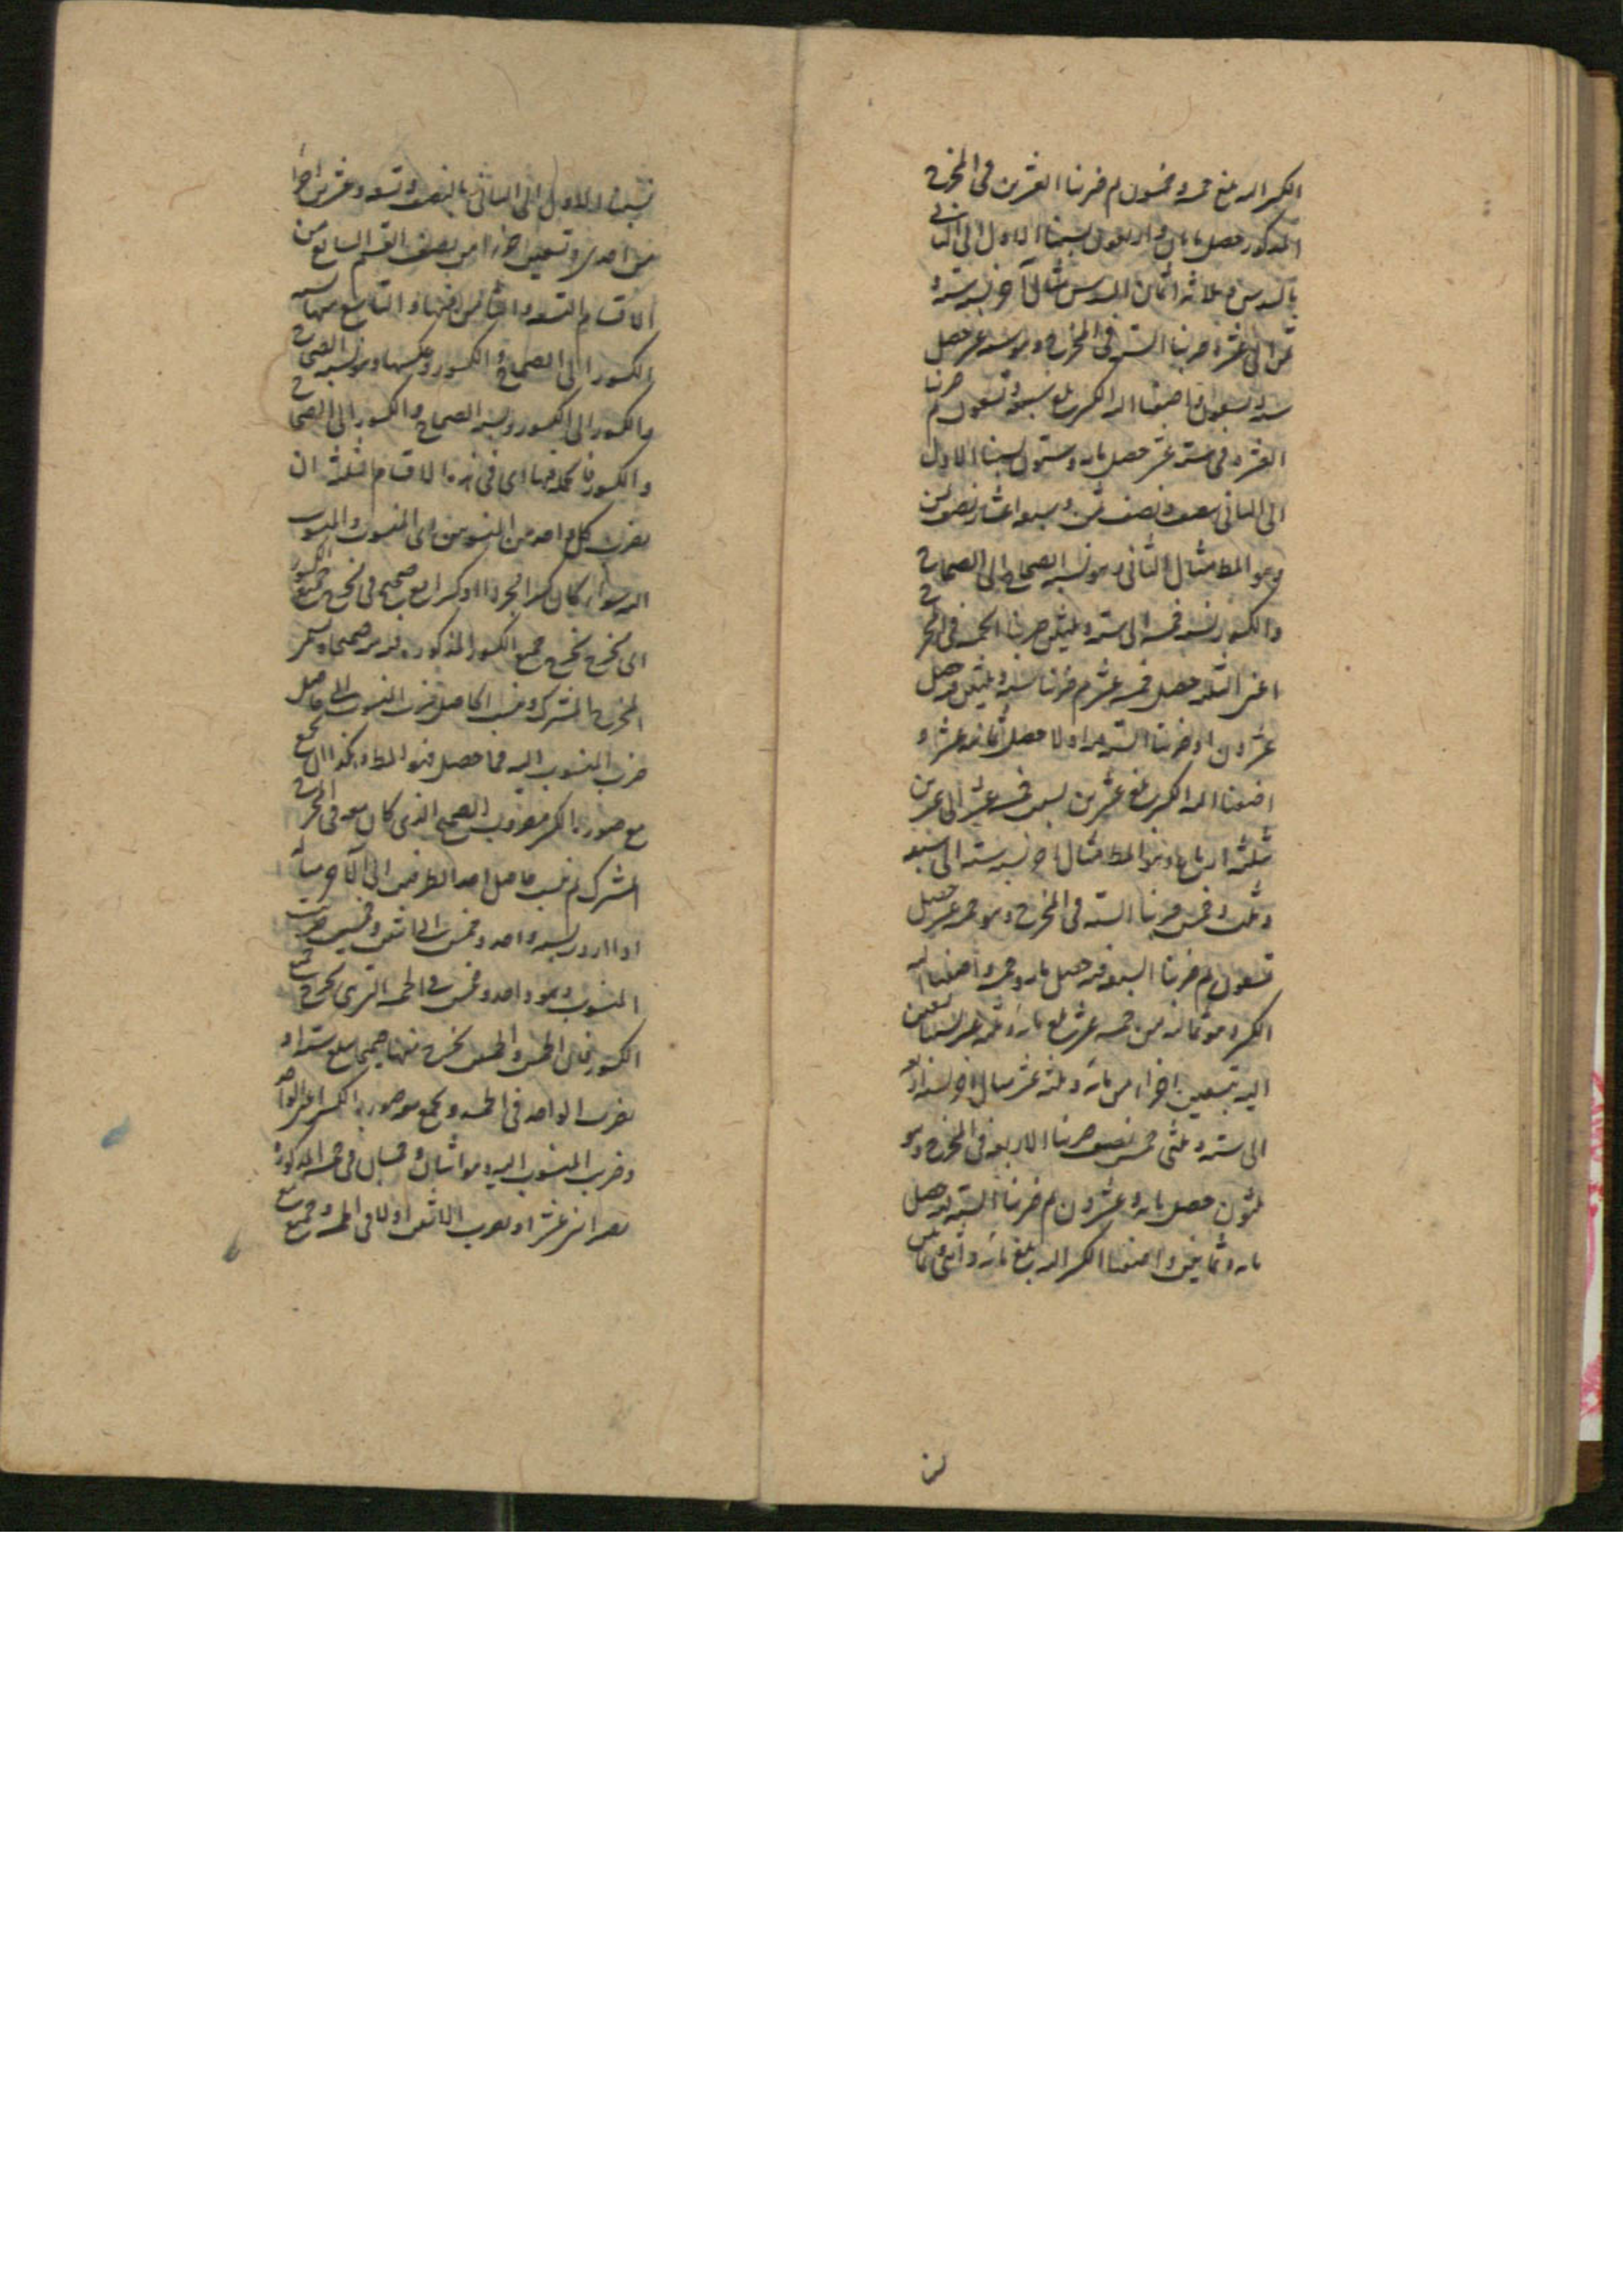 الكسر اليه بلغ خمسة وخمسون ثم ضربنا العشرين فى المخرج
المذكور حصل مايتان واربعون نسبنا الاول الى الثانى
بالسدس وثلاثة اثمان السدس مثال آخر نسبة ستة و
ثمن الى عشرة ضربنا الستة فى المخرج وهو ستة عشر حصل
ستة وتسعون فاضفنا اليه الكسر بلغ سبعة وتسعون ثم ضربنا
العشرة فى ستة عشر حصل مايه وستون نسبنا الاول
الى الثانى بنصف ونصف ثمن وسبعة اعشار نصف ثمن
وهو المط مثال الثانى وهو نسبة الصحاح الى الصحاح
والكسور نسبة خمسة الى ستة وثلثين ضربنا الخمسة فى المخرج
اعنى الثلثة حصل خمسة عشر ثم ضربنا ستة وثلثين فيه حصل
عشرون او ضربنا الستة فيه اولا حصل ثمانية عشر و
اضفنا اليه الكسر بلغ عشرين نسبة خمسة عشر الى عشرين
ثلثة ارباع وهو المط مثال اخر نسبة ستة الى سبعة
وثلث وخمس ضربنا الستة فى المخرج وهو خمسة عشر حصل
تسعون ثم ضربنا السبعة فيه حصل مايه وخمسة واضفنا اليه
الكسر وهو ثمانية من خمسة عشر بلغ مايه وثلثة عشر نسبنا تسعين
اليه بتسعين اجزاء من مايه وثلثة عشر مثال اخر نسبة اربعة
الى ستة وثلثى خمس نصف ضربنا الاربعة فى المخرج وهو
ثلثون حصل مايه وعشرون ثم ضربنا الستة فيه حصل
مايه وثمانين واضفنا الكسر اليه بلغ مايه واثنى وثمانين
نسبة الاول الى الثانى بالنصف وتسعة وعشرين اجزاء
من احدى وتسعين اجزاء من نصف القسم السابع من
الاقسام التسعة والثامن منها والتاسع منها نسبة
الكسور الى الصحاح والكسور وعكسها وهو نسبة الصحاح
والكسور الى الكسور ونسبة الصحاح والكسور الى الصحاح
والكسور فالحكم فيها اى فى هذه الاقسام الثلثة ان
يضرب كل واحد من المنسوبين اى المنسوب والمنسوب
اليه سواء كان كسرا مجردا او كسرا مع صحيح فى مخرج جميع الكسور
اى مخرج يخرج جميع الكسور المذكورة منه صحيحا وهو
المخرج المشترك وينسب الحاصل من ضرب المنسوب الى حاصل
ضرب المنسوب اليه فما حصل فهو المط وكذا ان يجمع
مع صورة الكسر مضروب الصحيح الذى كان معه فى المخرج
المشترك ثم نسب حاصل احد الطرفين الى الآخر مثاله
اذا اردت نسبة واحد وخمس الى اثنين وخمسين ضربت
المنسوب وهو واحد وخمس فى الخمسة التى هى مخرج جميع
الكسور فان الخمس والخمسين يخرج منها صحيحا بلغ ستة او
يضرب الواحد فى الخمسة ويجمع مع صورة الكسر اعنى الواحد
وضرب المنسوب اليه وهو اثنان وخمسان فى خمسة المذكورة
يصير اثنى عشر او يضرب الاثنين اولا فى الخمسة وجمع مع